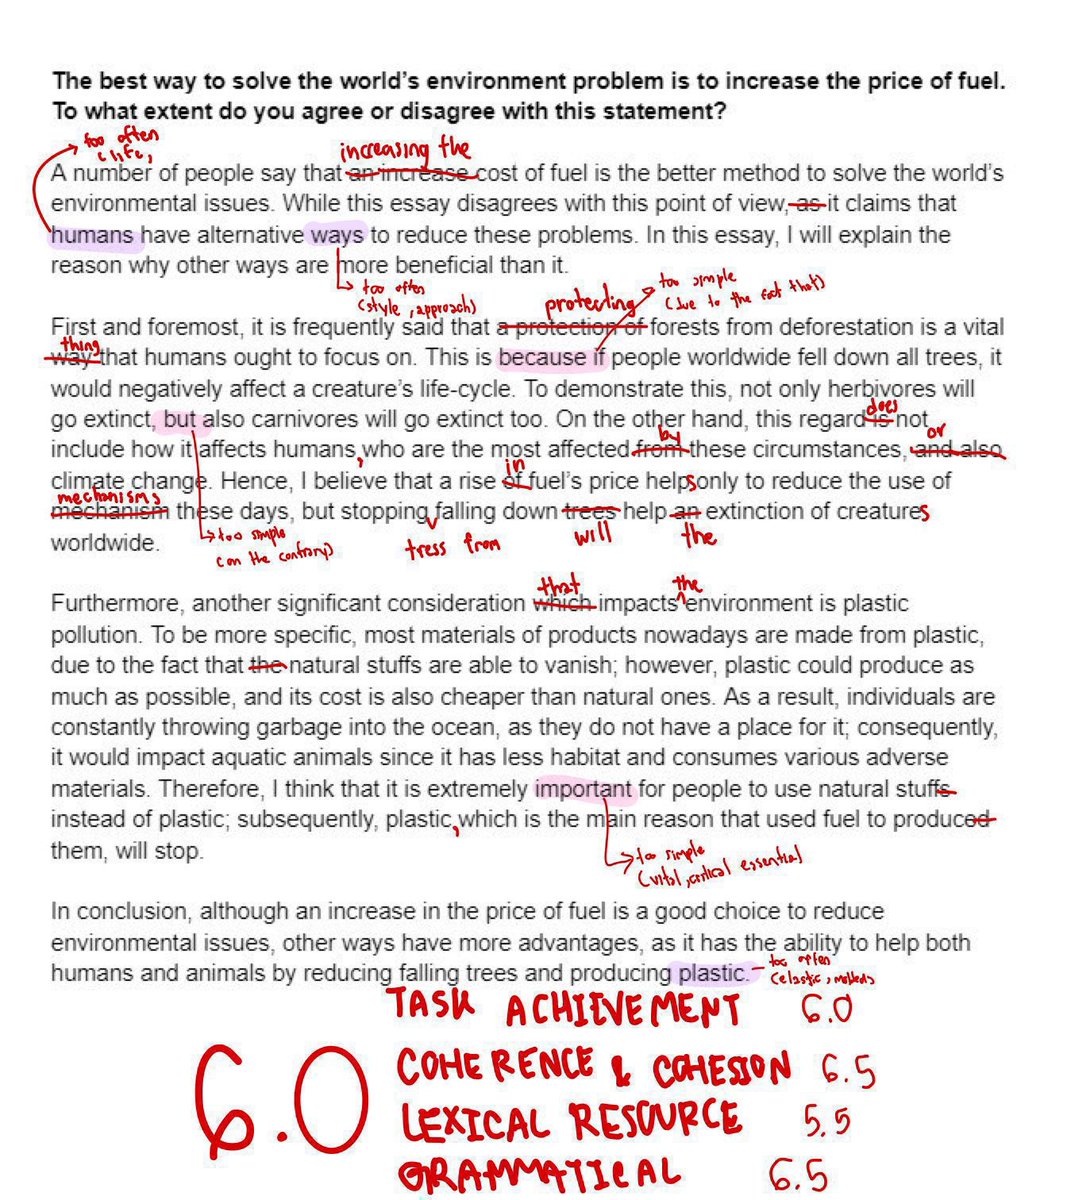 The best way to solve the world's environment problem is to increase the price of fuel.
To what extent do you agree or disagree with this statement?
too often
(life,
increasing the
A number of people say that an increase cost of fuel is the better method to solve the world's
environmental issues. While this essay disagrees with this point of view, as it claims that
humans have alternative ways to reduce these problems. In this essay, I will explain the
reason why other ways are more beneficial than it.
too often
(style, approach)
too simple
(due to the fact that)
protecting
First and foremost, it is frequently said that a protection of forests from deforestation is a vital
thing
way that humans ought to focus on. This is because if people worldwide fell down all trees, it
would negatively affect a creature's life-cycle. To demonstrate this, not only herbivores will
go extinct, but also carnivores will go extinct too. On the other hand, this regard is not
does
include how it affects humans, who are the most affected from these circumstances, and also
by
or
climate change. Hence, I believe that a rise of fuel's price helps only to reduce the use of
in
mechanisms
mechanism these days, but stopping falling down trees help an extinction of creatures
worldwide.
too simple
(on the contrary)
tress from
will
the
that
the
Furthermore, another significant consideration which impacts environment is plastic
pollution. To be more specific, most materials of products nowadays are made from plastic,
due to the fact that the natural stuffs are able to vanish; however, plastic could produce as
much as possible, and its cost is also cheaper than natural ones. As a result, individuals are
constantly throwing garbage into the ocean, as they do not have a place for it; consequently,
it would impact aquatic animals since it has less habitat and consumes various adverse
materials. Therefore, I think that it is extremely important for people to use natural stuffs
instead of plastic; subsequently, plastic, which is the main reason that used fuel to produced
them, will stop.
too simple
(vital, critical essential)
In conclusion, although an increase in the price of fuel is a good choice to reduce
environmental issues, other ways have more advantages, as it has the ability to help both
humans and animals by reducing falling trees and producing plastic.
too often
(elastic,
TASK ACHIEVEMENT 6.0
6.0
COHERENCE & COHESION 6.5
LEXICAL RESOURCE 5.5
GRAMMATICAL 6.5